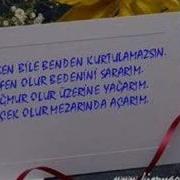 SEN BİLE BENDEN KURTULAMAZSIN.
FEN OLUR BEDENİNİ SARARIM.
ĞMUR OLUR ÜZERİNE YAĞARIM.
ÇEK OLUR MEZARINDA AÇARIM.